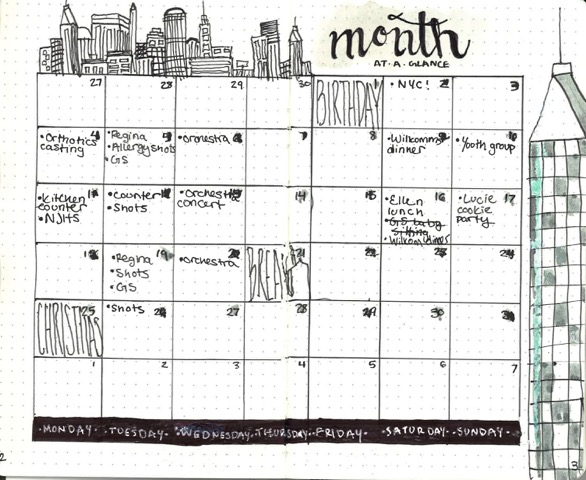 month
AT·A·GLANCE
27 28 29 30 1 2 3
BIRTHDAY
• NYC!
4 5 6 7 8 9 10
• Orthotics casting
• Regina
• Allergy shots
• GS
• Orchestra
• Wilkommy dinner
• Youth group
11 12 13 14 15 16 17
• Kitchen counter
• NJHS
• Counter
• Shots
• Orchestra concert
• Ellen lunch
• GS baby sitting
• Lucie cookie party
18 19 20 21 22 23 24
• Regina
• Shots
• GS
• Orchestra
BREAK
25 26 27 28 29 30 31
CHRISTMAS
• Shots
1 2 3 4 5 6 7
·MONDAY· ·TUESDAY· ·WEDNESDAY· ·THURSDAY· ·FRIDAY· ·SATURDAY· ·SUNDAY·
2
3